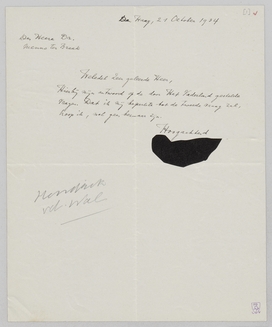 Den Haag, 21 October 1934
Den Heere Dr.
Menno ter Braak
Weledel Zeer geleerde Heer,
Hierbij mijn antwoord op de door Het Vaderland gestelde
vragen. Dat ik mij beperkte tot de tweede vraag zal,
hoop ik, wel geen bezwaar zijn.
Hoogachtend
Hendrik
v.d. Wal